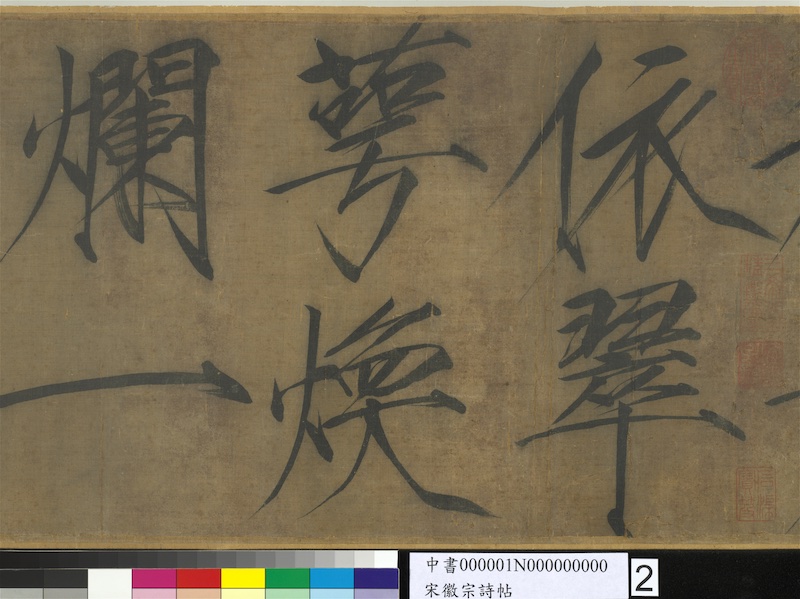 依翠
萼煥
爛一
中書000001N000000000
宋徽宗詩帖
2